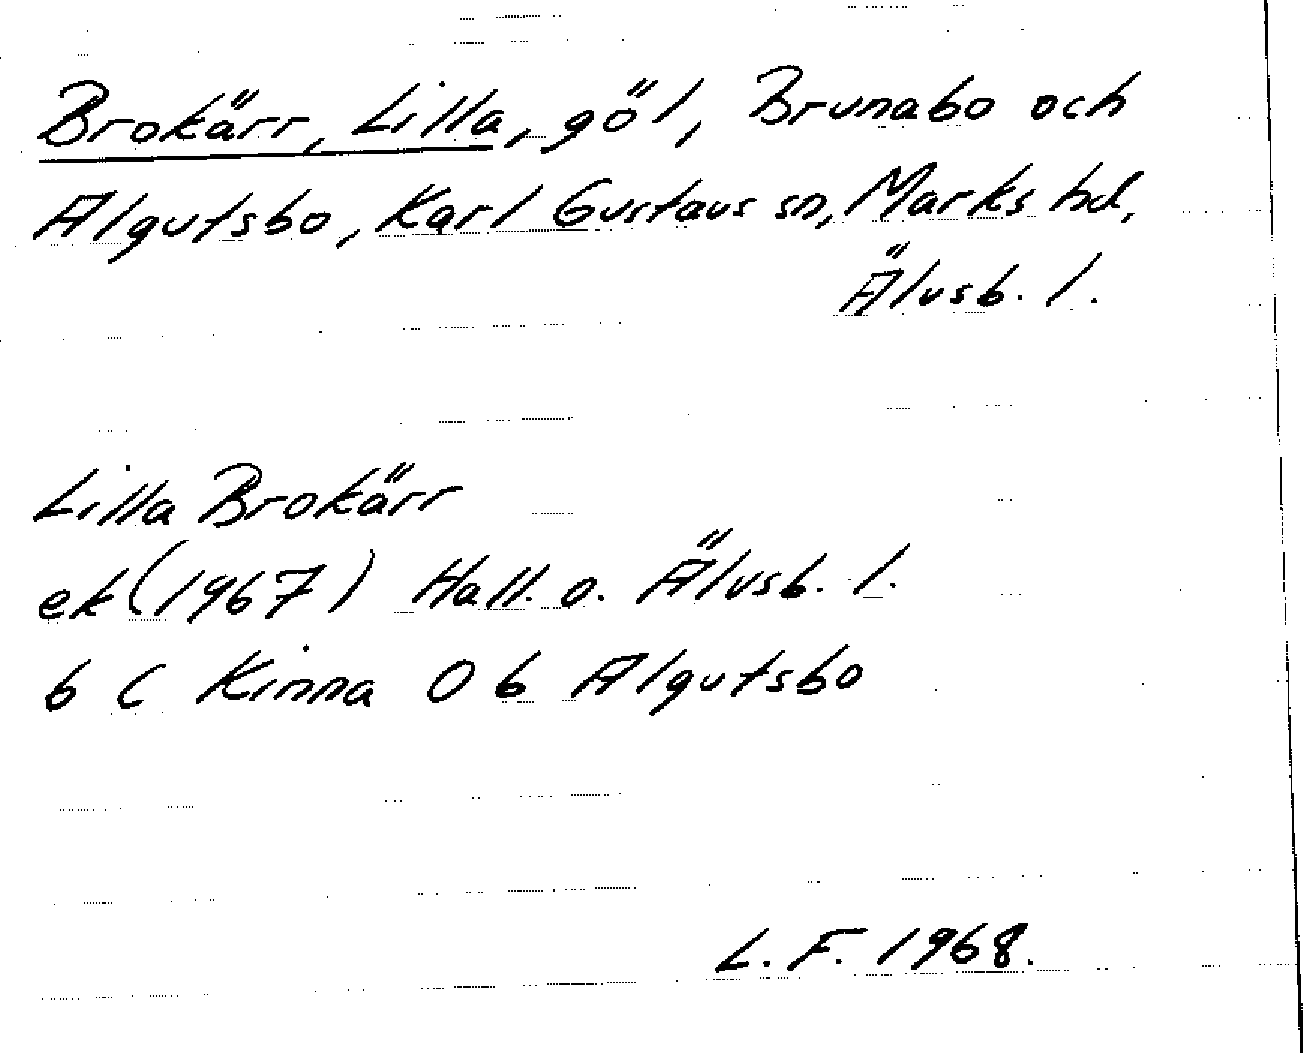 Brokärr, Lilla, göl, Brunabo och
Algutsbo, Karl Gustavs sn, Marks hd,
Älvsb. l.
Lilla Brokärr
ek (1967) Hall. o. Älvsb. l.
6 C Kinna O b Algutsbo
L. F. 1968.